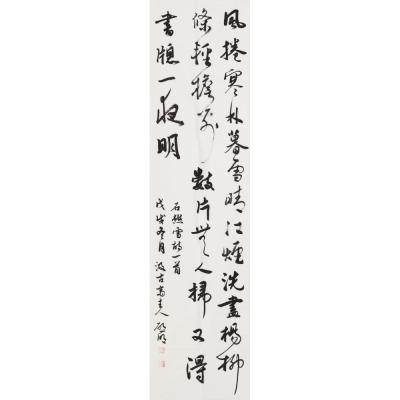 風捲寒暮雪晴江煙洗盡楊柳
條輕檐前數片無人掃又得
書牕一夜明
雪詩一首
戊戌冬月汲古齋主人